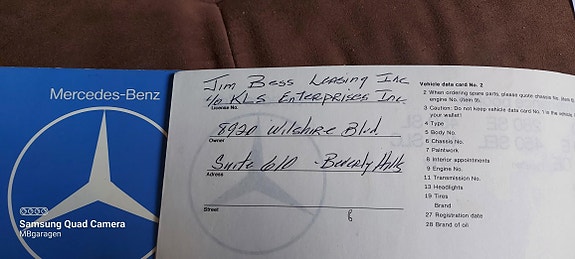 Mercedes-Benz
SAMSUNG
Samsung Quad Camera
MBgaragen
Jim Bess Leasing Inc
c/o KLS Enterprises Inc.
License No.
8920 Wilshire Blvd
Owner
Suite 610 - Beverly Hills
Adress
Street
Vehicle data card No. 2
2 When ordering spare parts, please quote chassis No. (item 6)
engine No. (item 9).
3 Caution: Do not keep vehicle data card No. 1 in the vehicle,
your wallet!
4 Type
5 Body No.
6 Chassis No.
7 Paintwork
8 Interior appointments
9 Engine No.
11 Transmission No.
13 Headlights
19 Tires
Brand
27 Registration date
28 Brand of oil